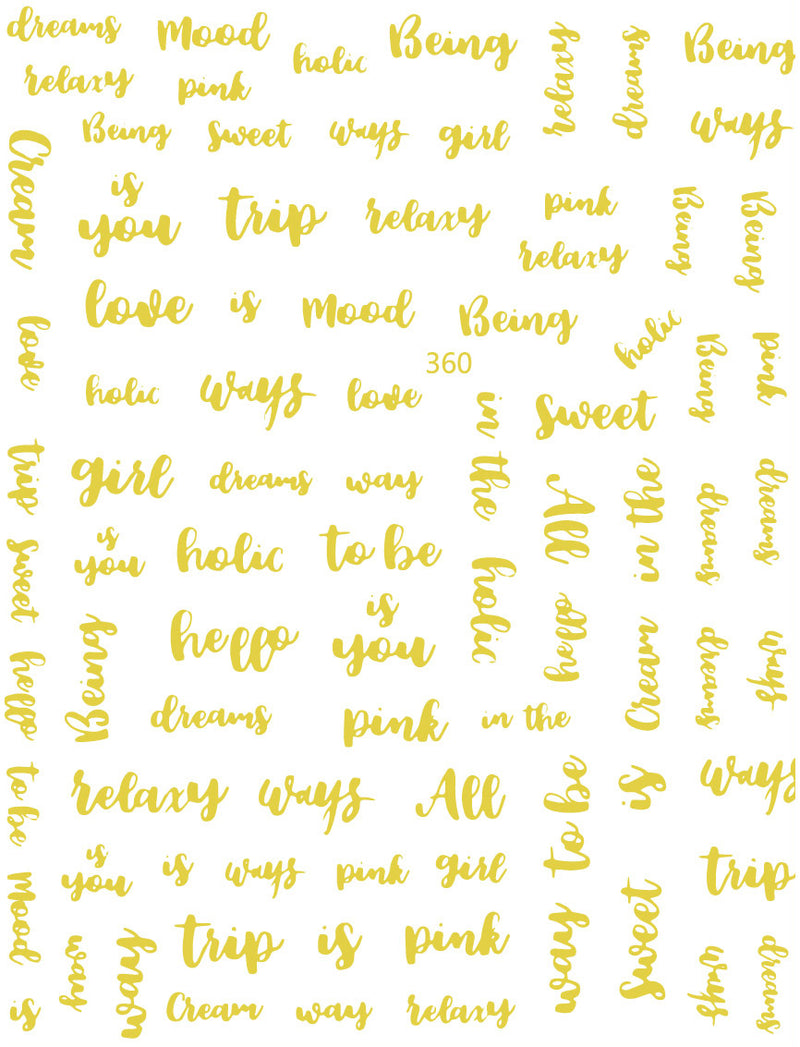 dreams
Mood
holic
Being
relaxy
dreams
Being
relaxy
pink
Being
Sweet
ways
girl
ways
Cream
is
you
trip
relaxy
pink
relaxy
Being
Being
love
is
Mood
Being
holic
love
360
Being
pink
holic
ways
love
in the
Sweet
trip
girl
dreams
way
All
in the
dreams
dreams
Sweet
is
you
holic
to be
holic
hello
Being
hello
is
you
hello
Cream
dreams
ways
dreams
pink
in the
to be
relaxy
ways
All
way to be
is
ways
Mood
is
you
is
ways
pink
girl
Sweet
trip
way
way
trip
is
pink
ways
dreams
is
Cream
way
relaxy